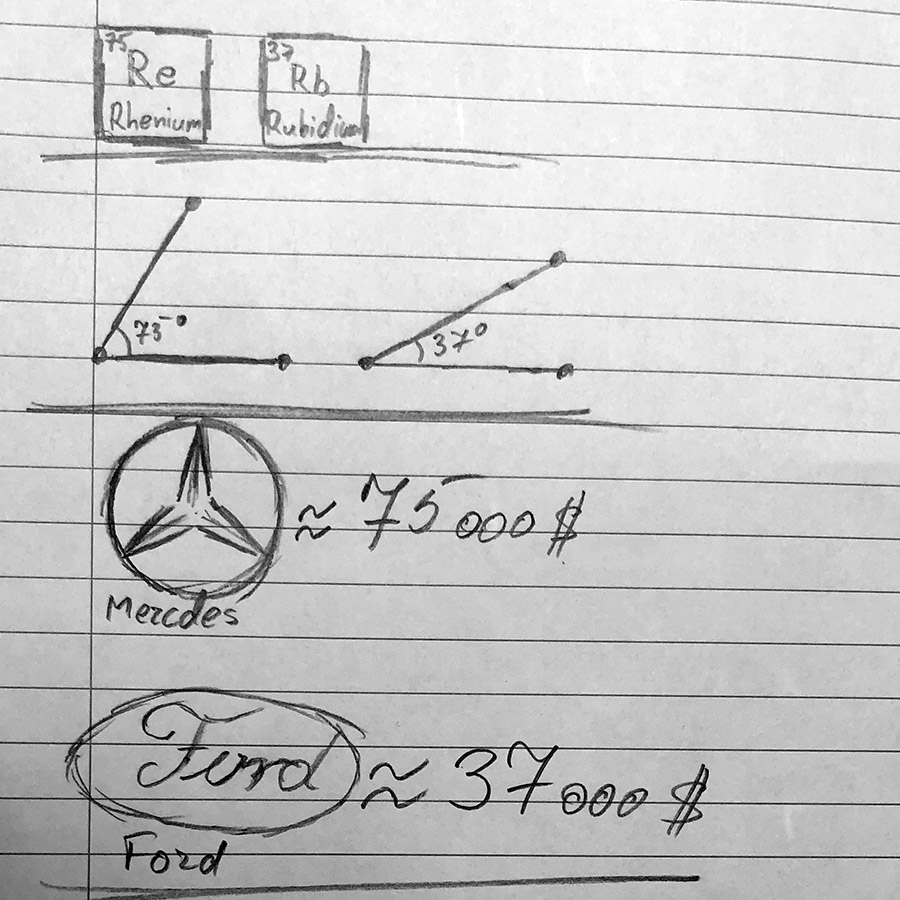 75 37
Re Rb
Rhenium Rubidium
75° 37°
≈ 75 000 $
Mercdes
Ford ≈ 37 000 $
Ford